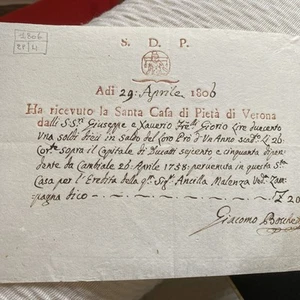 1806
S. D. P.
Adi 29 Aprile 1806
Ha ricevuto la Santa Casa di Pietà di Verona
dalli S.Sri Giuseppe e Xaverio Giorio Lire duncento
Vna soldi tresi in saldo del Pro d'Vn Anno L 26
sopra il Capitale di Ducatti seicento e cinquanta dipen
dente da Cambiale 26 Aprile 1758: pervenuta in questa
Casa per l'Eredità della Sigra Ancilla Malenza Ved. Zam
pagna dico
Giacomo